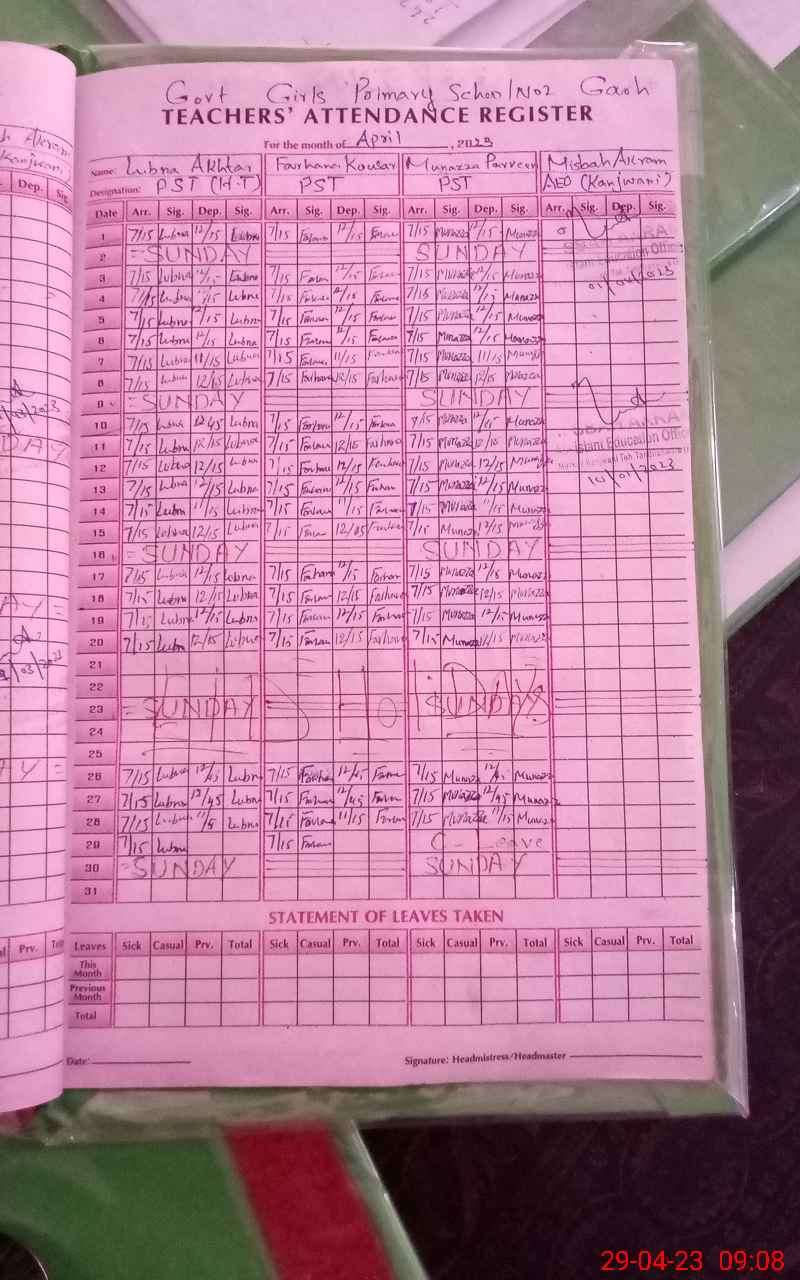 Govt Girls Primary School No2 Gaoh
TEACHERS' ATTENDANCE REGISTER
For the month of April, 2023
Name: Lubna Akhtar Farhana Kousar Munazza Parveen Misbah Akram
Designation: PST (H.T) PST PST AEO (Kanjwani)
Date Arr. Sig. Dep. Sig. Arr. Sig. Dep. Sig. Arr. Sig. Dep. Sig. Arr. Sig. Dep. Sig.
1 7/15 Lubna 12/15 Lubna 7/15 Farhana 12/15 Farhana 7/15 Munazza 12/15 Munazza
2 = SUNDAY SUNDAY
3 7/15 Lubna 12/15 Lubna 7/15 Farhana 12/15 Farhana 7/15 Munazza 12/15 Munazza
4 7/15 Lubna 12/15 Lubna 7/15 Farhana 12/15 Farhana 7/15 Munazza 12/15 Munazza
5 7/15 Lubna 12/15 Lubna 7/15 Farhana 12/15 Farhana 7/15 Munazza 12/15 Munazza
6 7/15 Lubna 12/15 Lubna 7/15 Farhana 12/15 Farhana 7/15 Munazza 12/15 Munazza
7 7/15 Lubna 11/15 Lubna 7/15 Farhana 11/15 Farhana 7/15 Munazza 11/15 Munazza
8 7/15 Lubna 12/15 Lubna 7/15 Farhana 12/15 Farhana 7/15 Munazza 12/15 Munazza
9 = SUNDAY SUNDAY
10 7/15 Lubna 12/45 Lubna 7/15 Farhana 12/15 Farhana 7/15 Munazza 12/15 Munazza
11 7/15 Lubna 12/15 Lubna 7/15 Farhana 12/15 Farhana 7/15 Munazza 12/15 Munazza
12 7/15 Lubna 12/15 Lubna 7/15 Farhana 12/15 Farhana 7/15 Munazza 12/15 Munazza
13 7/15 Lubna 12/15 Lubna 7/15 Farhana 12/15 Farhana 7/15 Munazza 12/15 Munazza
14 7/15 Lubna 11/15 Lubna 7/15 Farhana 11/15 Farhana 7/15 Munazza 11/15 Munazza
15 7/15 Lubna 12/15 Lubna 7/15 Farhana 12/05 Farhana 7/15 Munazza 12/15 Munazza
16 = SUNDAY SUNDAY
17 7/15 Lubna 12/15 Lubna 7/15 Farhana 12/15 Farhana 7/15 Munazza 12/15 Munazza
18 7/15 Lubna 12/15 Lubna 7/15 Farhana 12/15 Farhana 7/15 Munazza 12/15 Munazza
19 7/15 Lubna 12/15 Lubna 7/15 Farhana 12/15 Farhana 7/15 Munazza 12/15 Munazza
20 7/15 Lubna 12/15 Lubna 7/15 Farhana 12/15 Farhana 7/15 Munazza 12/15 Munazza
21
22
23 = SUNDAY SUNDAY
24
25
26 7/15 Lubna 12/45 Lubna 7/15 Farhana 12/45 Farhana 7/15 Munazza 12/45 Munazza
27 7/15 Lubna 12/45 Lubna 7/15 Farhana 12/45 Farhana 7/15 Munazza 12/45 Munazza
28 7/15 Lubna 11/15 Lubna 7/15 Farhana 11/15 Farhana 7/15 Munazza 11/15 Munazza
29 7/15 Lubna 7/15 Farhana C - Leave
30 = SUNDAY SUNDAY
31
Assistant Education Officer
01/04/2023
Assistant Education Officer
STATEMENT OF LEAVES TAKEN
Leaves Sick Casual Prv. Total Sick Casual Prv. Total Sick Casual Prv. Total Sick Casual Prv. Total
This Month
Previous Month
Total
Date:
Signature: Headmistress/Headmaster
29-04-23 09:08